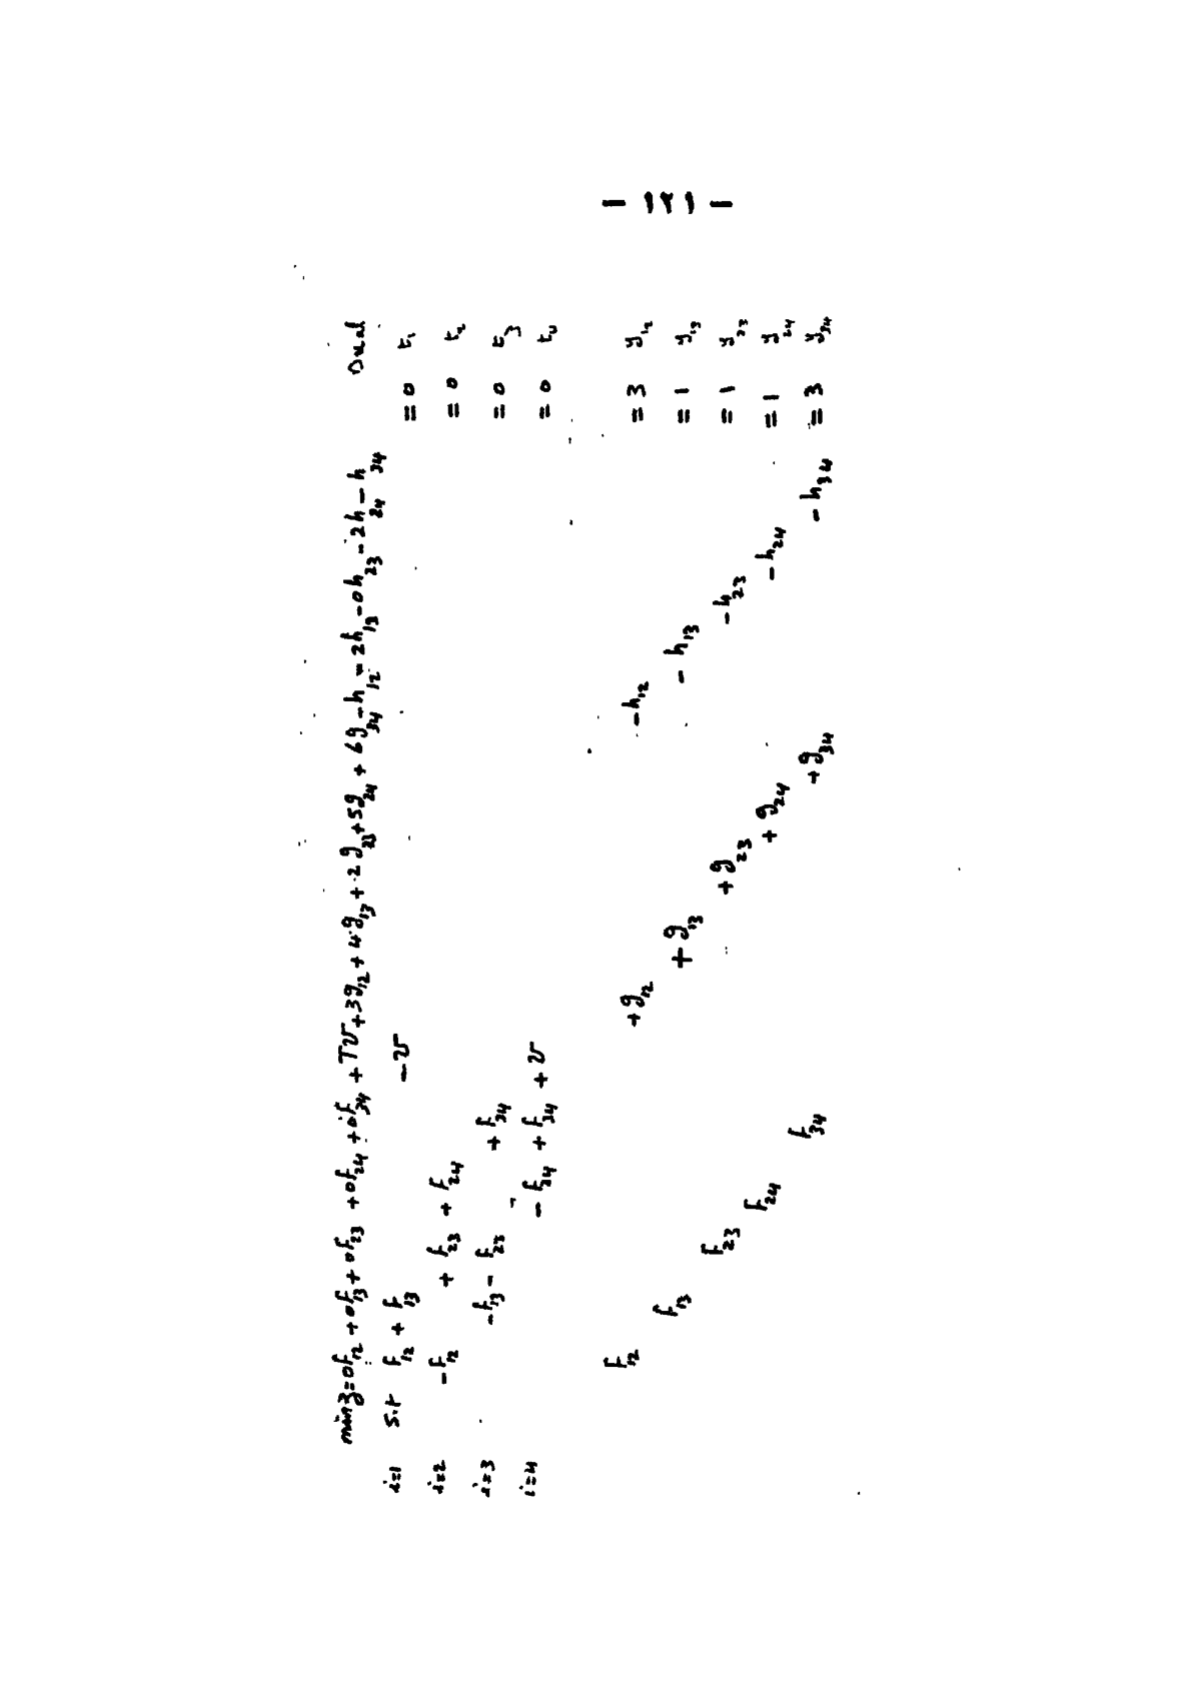 - ١٢١ -
min z=0F12 + 0F13 + 0F23 + 0F24 + 0F34 + Tv + 3g12 + 4g13 + 2g23 + 5g24 + 6g34 - h12 - 2h13 - 0h23 - 2h24 - h34 Dual
i=1 S.t F12 + F13 - v = 0 t1
i=2 -F12 + F23 + F24 = 0 t2
i=3 -F13 - F23 + F34 = 0 t3
i=4 - F24 + F34 + v = 0 t4
F12 + g12 - h12 = 3 y12
F13 + g13 - h13 = 1 y13
F23 + g23 - h23 = 1 y23
F24 + g24 - h24 = 1 y24
F34 + g34 - h34 = 3 y34